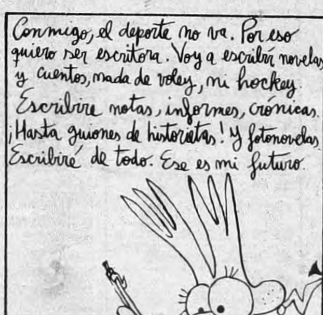 Conmigo, el deporte no va. Por eso
quiero ser escritora. Voy a escribir novelas
y cuentos, nada de voley, ni hockey.
Escribire notas, informes, crónicas.
¡Hasta guiones de historietas! y fotonovelas.
Escribiré de todo. Ese es mi futuro.